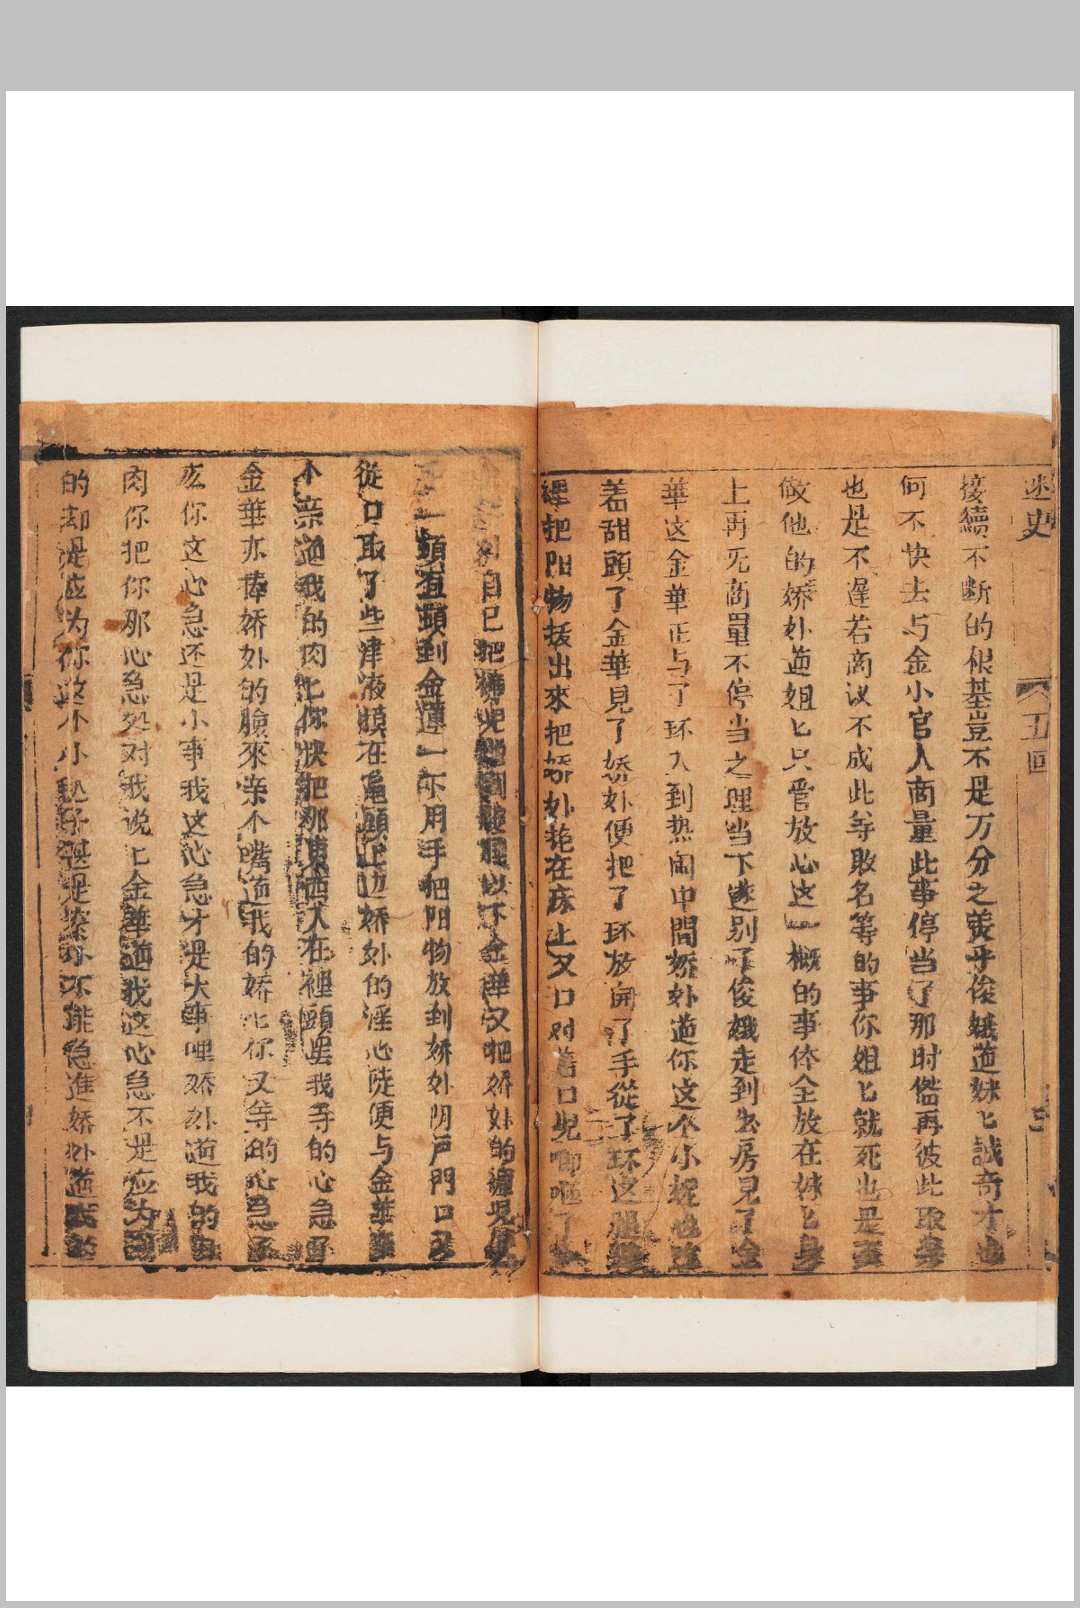 迷史
五回
接續不断的根基豈不是万分之美乎俊娥道妹匕誠奇才也
何不快去与金小官人商量此事停当了那时偺再彼此取
也是不遲若商议不成此等敗名等的事你姐匕就死也是
做他的娇外道姐匕只管放心这一概的事体全放在妹匕身
上再无商量不停当之理当下遂别了俊娥走到房見了金
華这金華正与了环入到热闹中間娇外道你这个小
着甜頭了金華見了娇外便把了环放開了手從了环这腿
裡把阳物拔出來把娇外抱在床上又口对着口兒唧嘔了
自已把褲兒以下金華又把娇外的褲兒
到金蓮一不用手把阳物放到娇外阴戸門口
從口取了些津液顔在亀頭上边娇外的淫心陡便与金華
个亲道我的肉匕你快把那東西大在裡頭罢我等的心急
金華亦捧娇外的臉來亲个嘴道我的娇匕你又等的心急
広你这心急还是小事我这心急才是大事哩娇外道我的
肉你把你那心急処对我说匕金華道我这心急不是应为
的却是应为你这个小不能急進娇外道我的